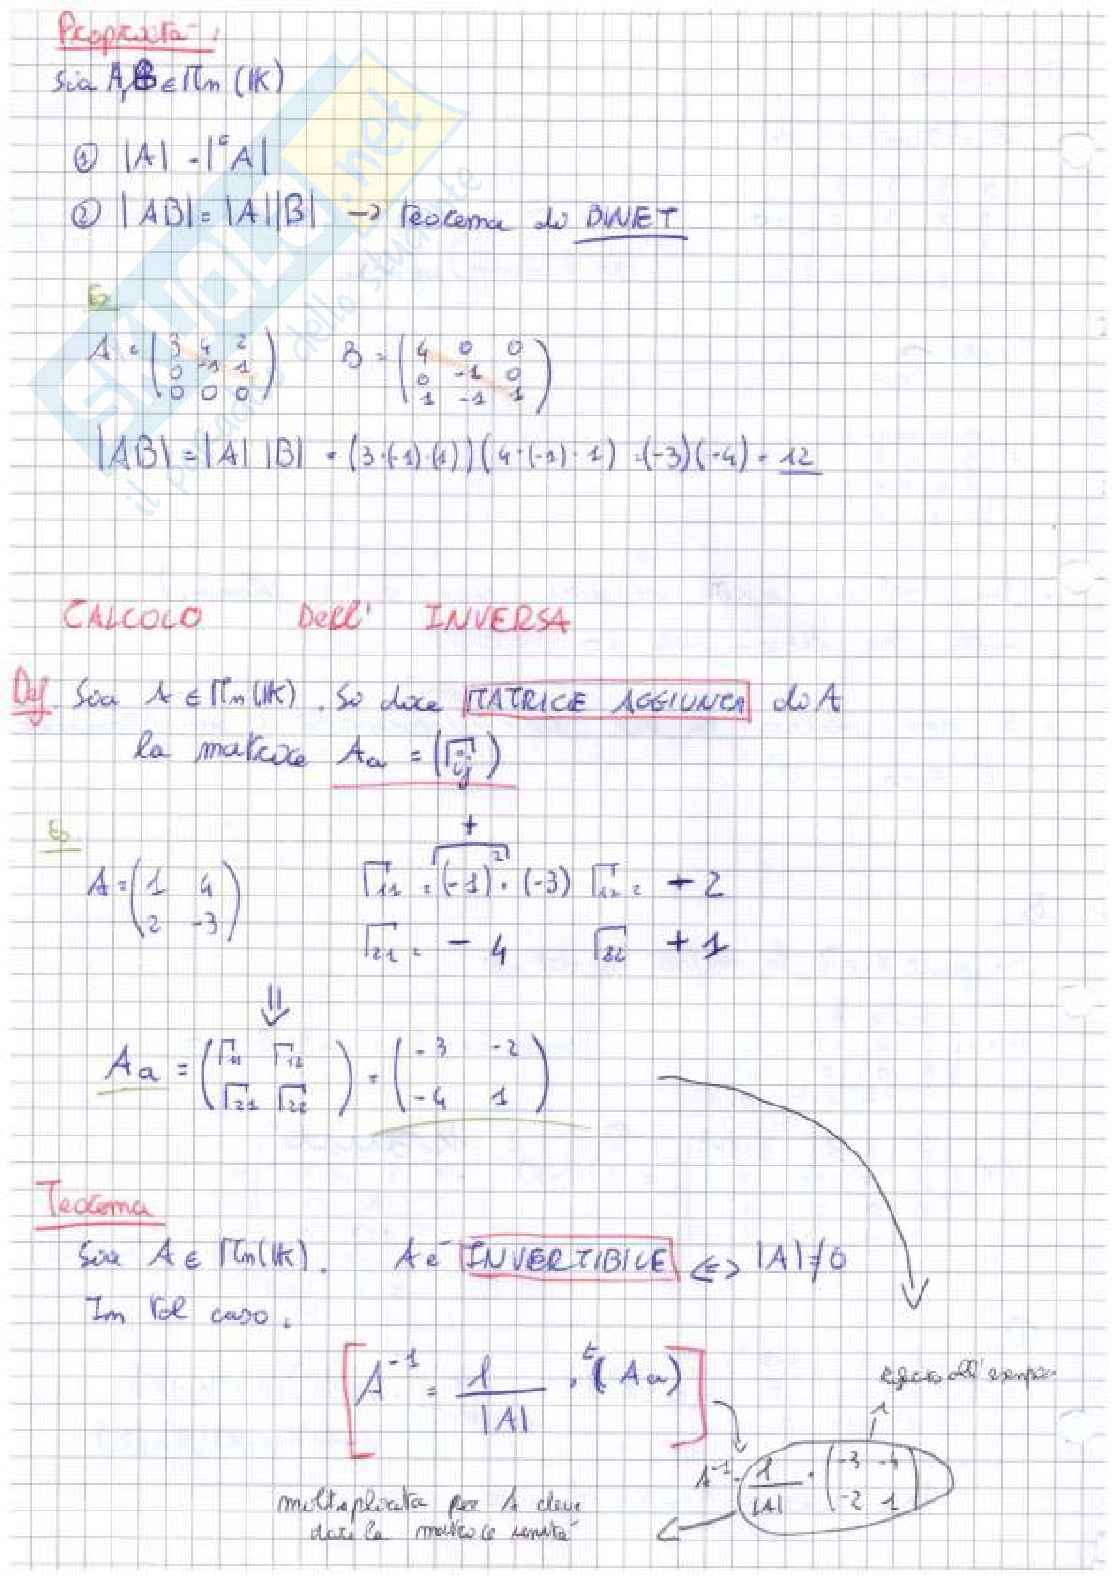 Proprietà:
Sia A,B ∈ Mn (K)
① |A| = |ᵗA|
② |AB| = |A||B| → Teorema di BINET
Es
A = (3 4 2      B = (4 0 0
0 -1 1      0 -1 0
0 0 0)      1 -1 1)
|AB| = |A| |B| = (3·(-1)·(1))(4·(-1)·1) = (-3)(-4) = 12
CALCOLO Dell' INVERSA
Def. Sia A ∈ Mn(K). Si dice MATRICE AGGIUNTA di A
la matrice Aa = (Γij)
Es
+
A = (1 4      Γ11 = (-1)²·(-3)   Γ12 = +2
2 -3)      Γ21 = -4   Γ22 +1
⇓
Aa = (Γ11 Γ12   = (-3 -2
Γ21 Γ22)   -4 1)
Teorema
Sia A ∈ Mn(K). A è INVERTIBILE <=> |A|≠0
In tal caso:
[A⁻¹ = 1/|A| · ᵗ(Aa)]
dell'esempio
A⁻¹ = 1/|A| · (-3 -4
-2 1)
moltiplicata per A deve
dare la matrice unità
skuola.net
il paradiso dello studente